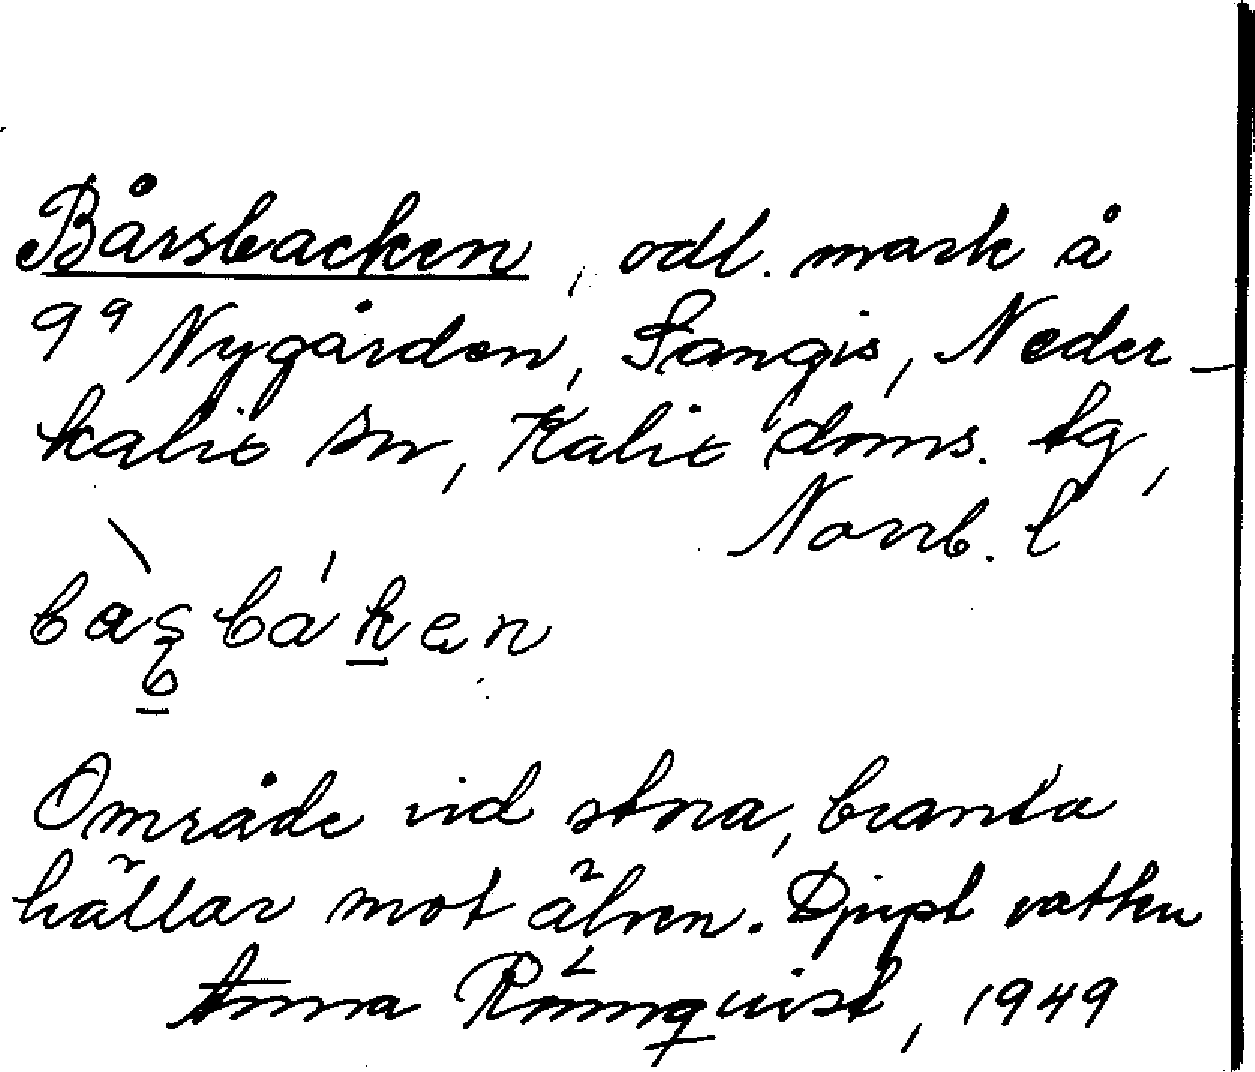 Bårsbacken, odl. mark å
9⁹ Nygården, Sangis, Neder-
kalix sn, Kalix doms. tg,
Norrb. l
Område vid stora, branta
hällar mot älven. Djupt vatten
Anna Rönnqvist, 1949